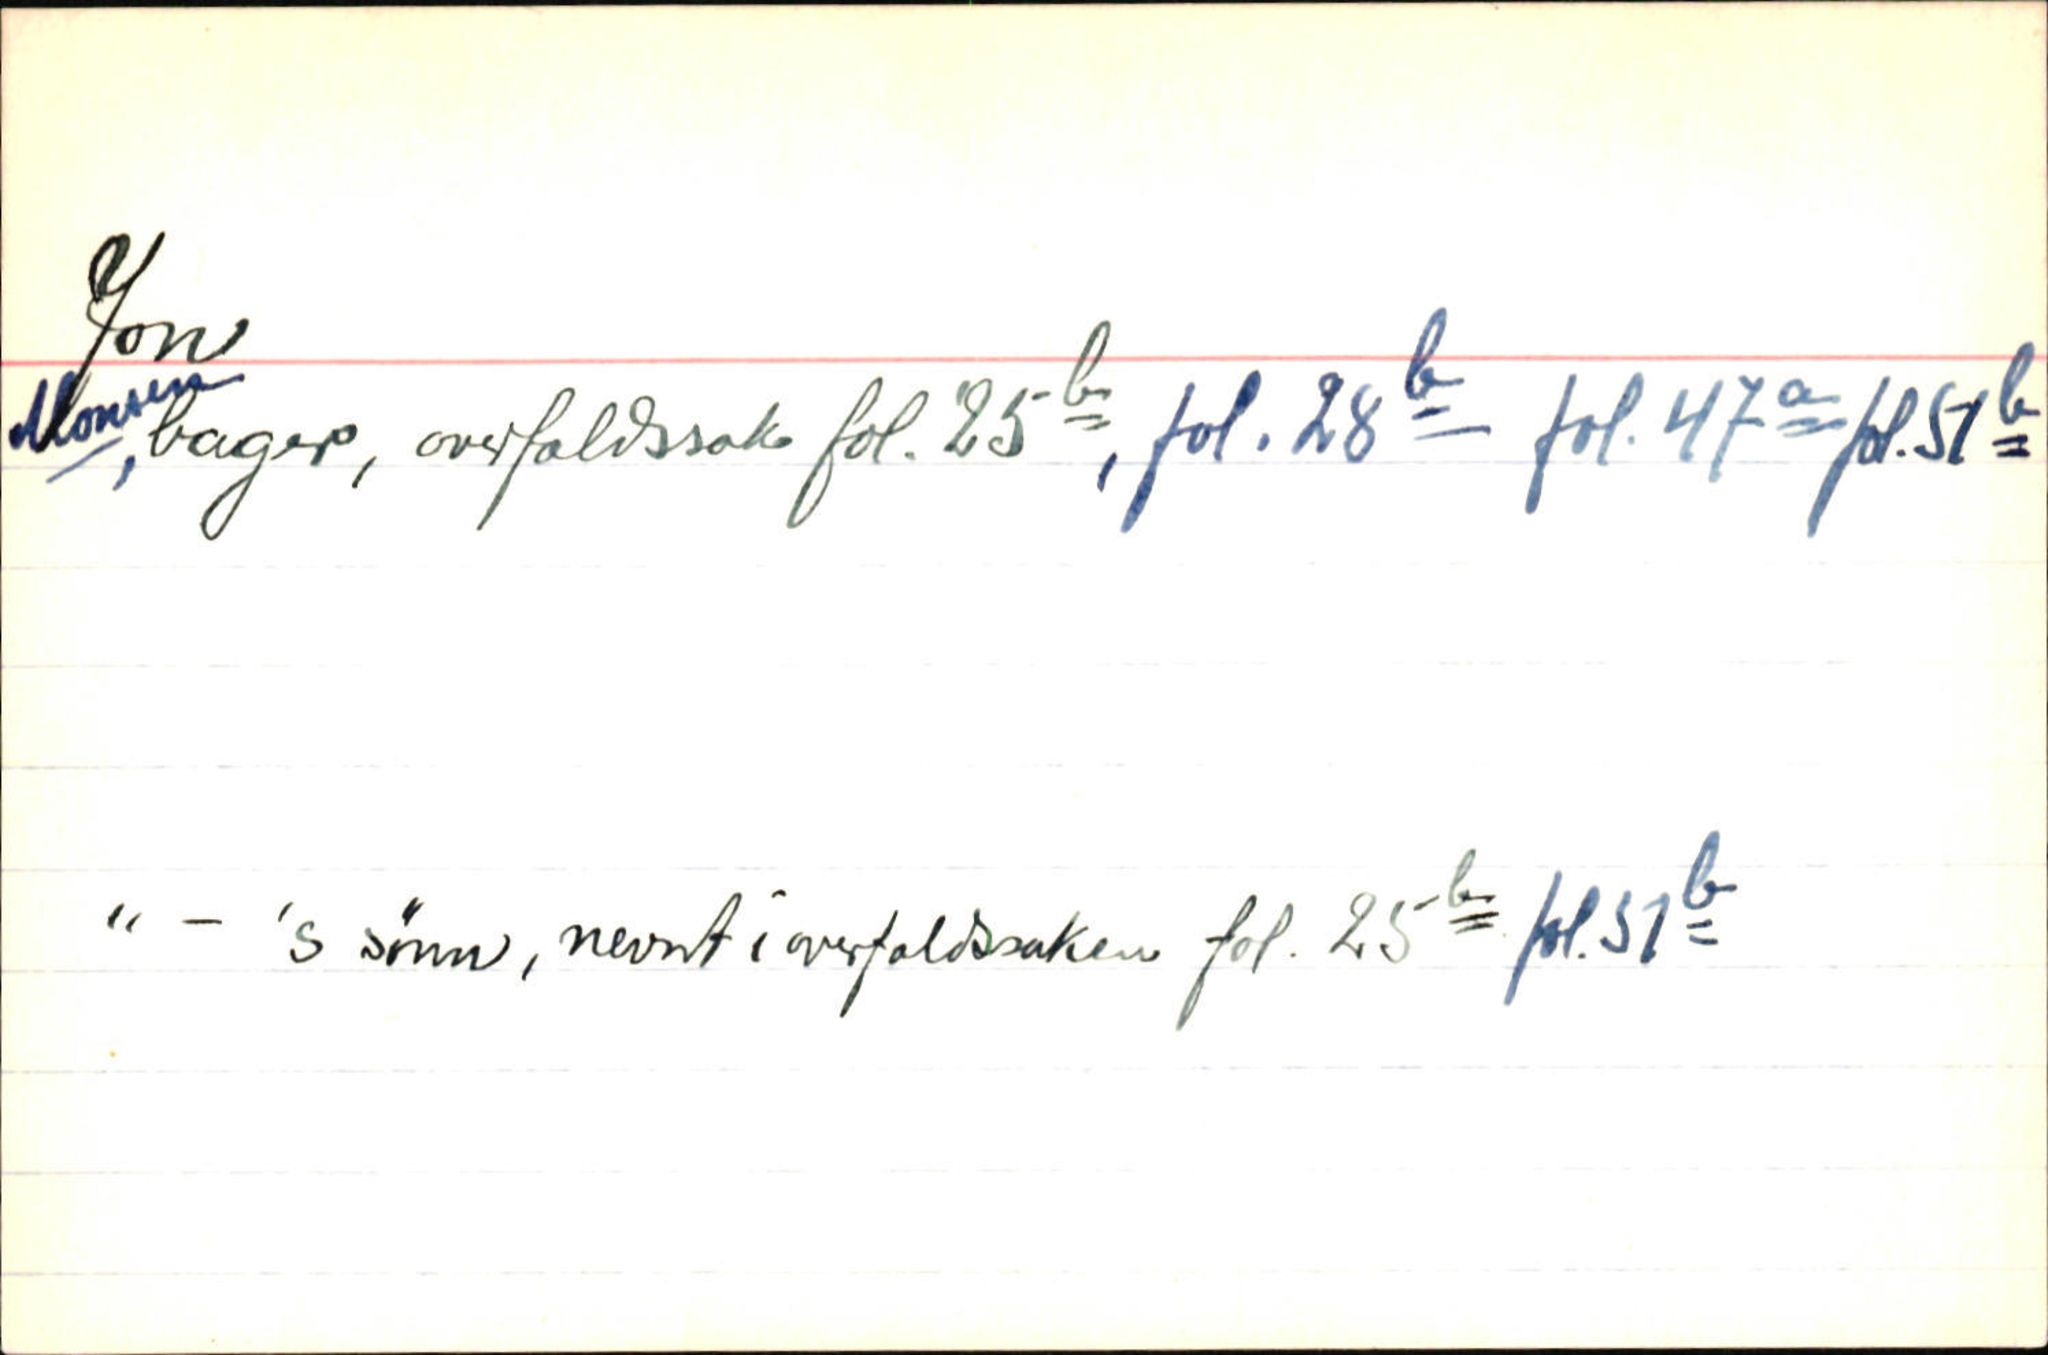 Jon
Monsen, bager, overfaldssak fol. 25b, fol. 28b fol. 47a fol. 51b
" – 's sönn, nevnt i overfaldssaken fol. 25b fol. 51b